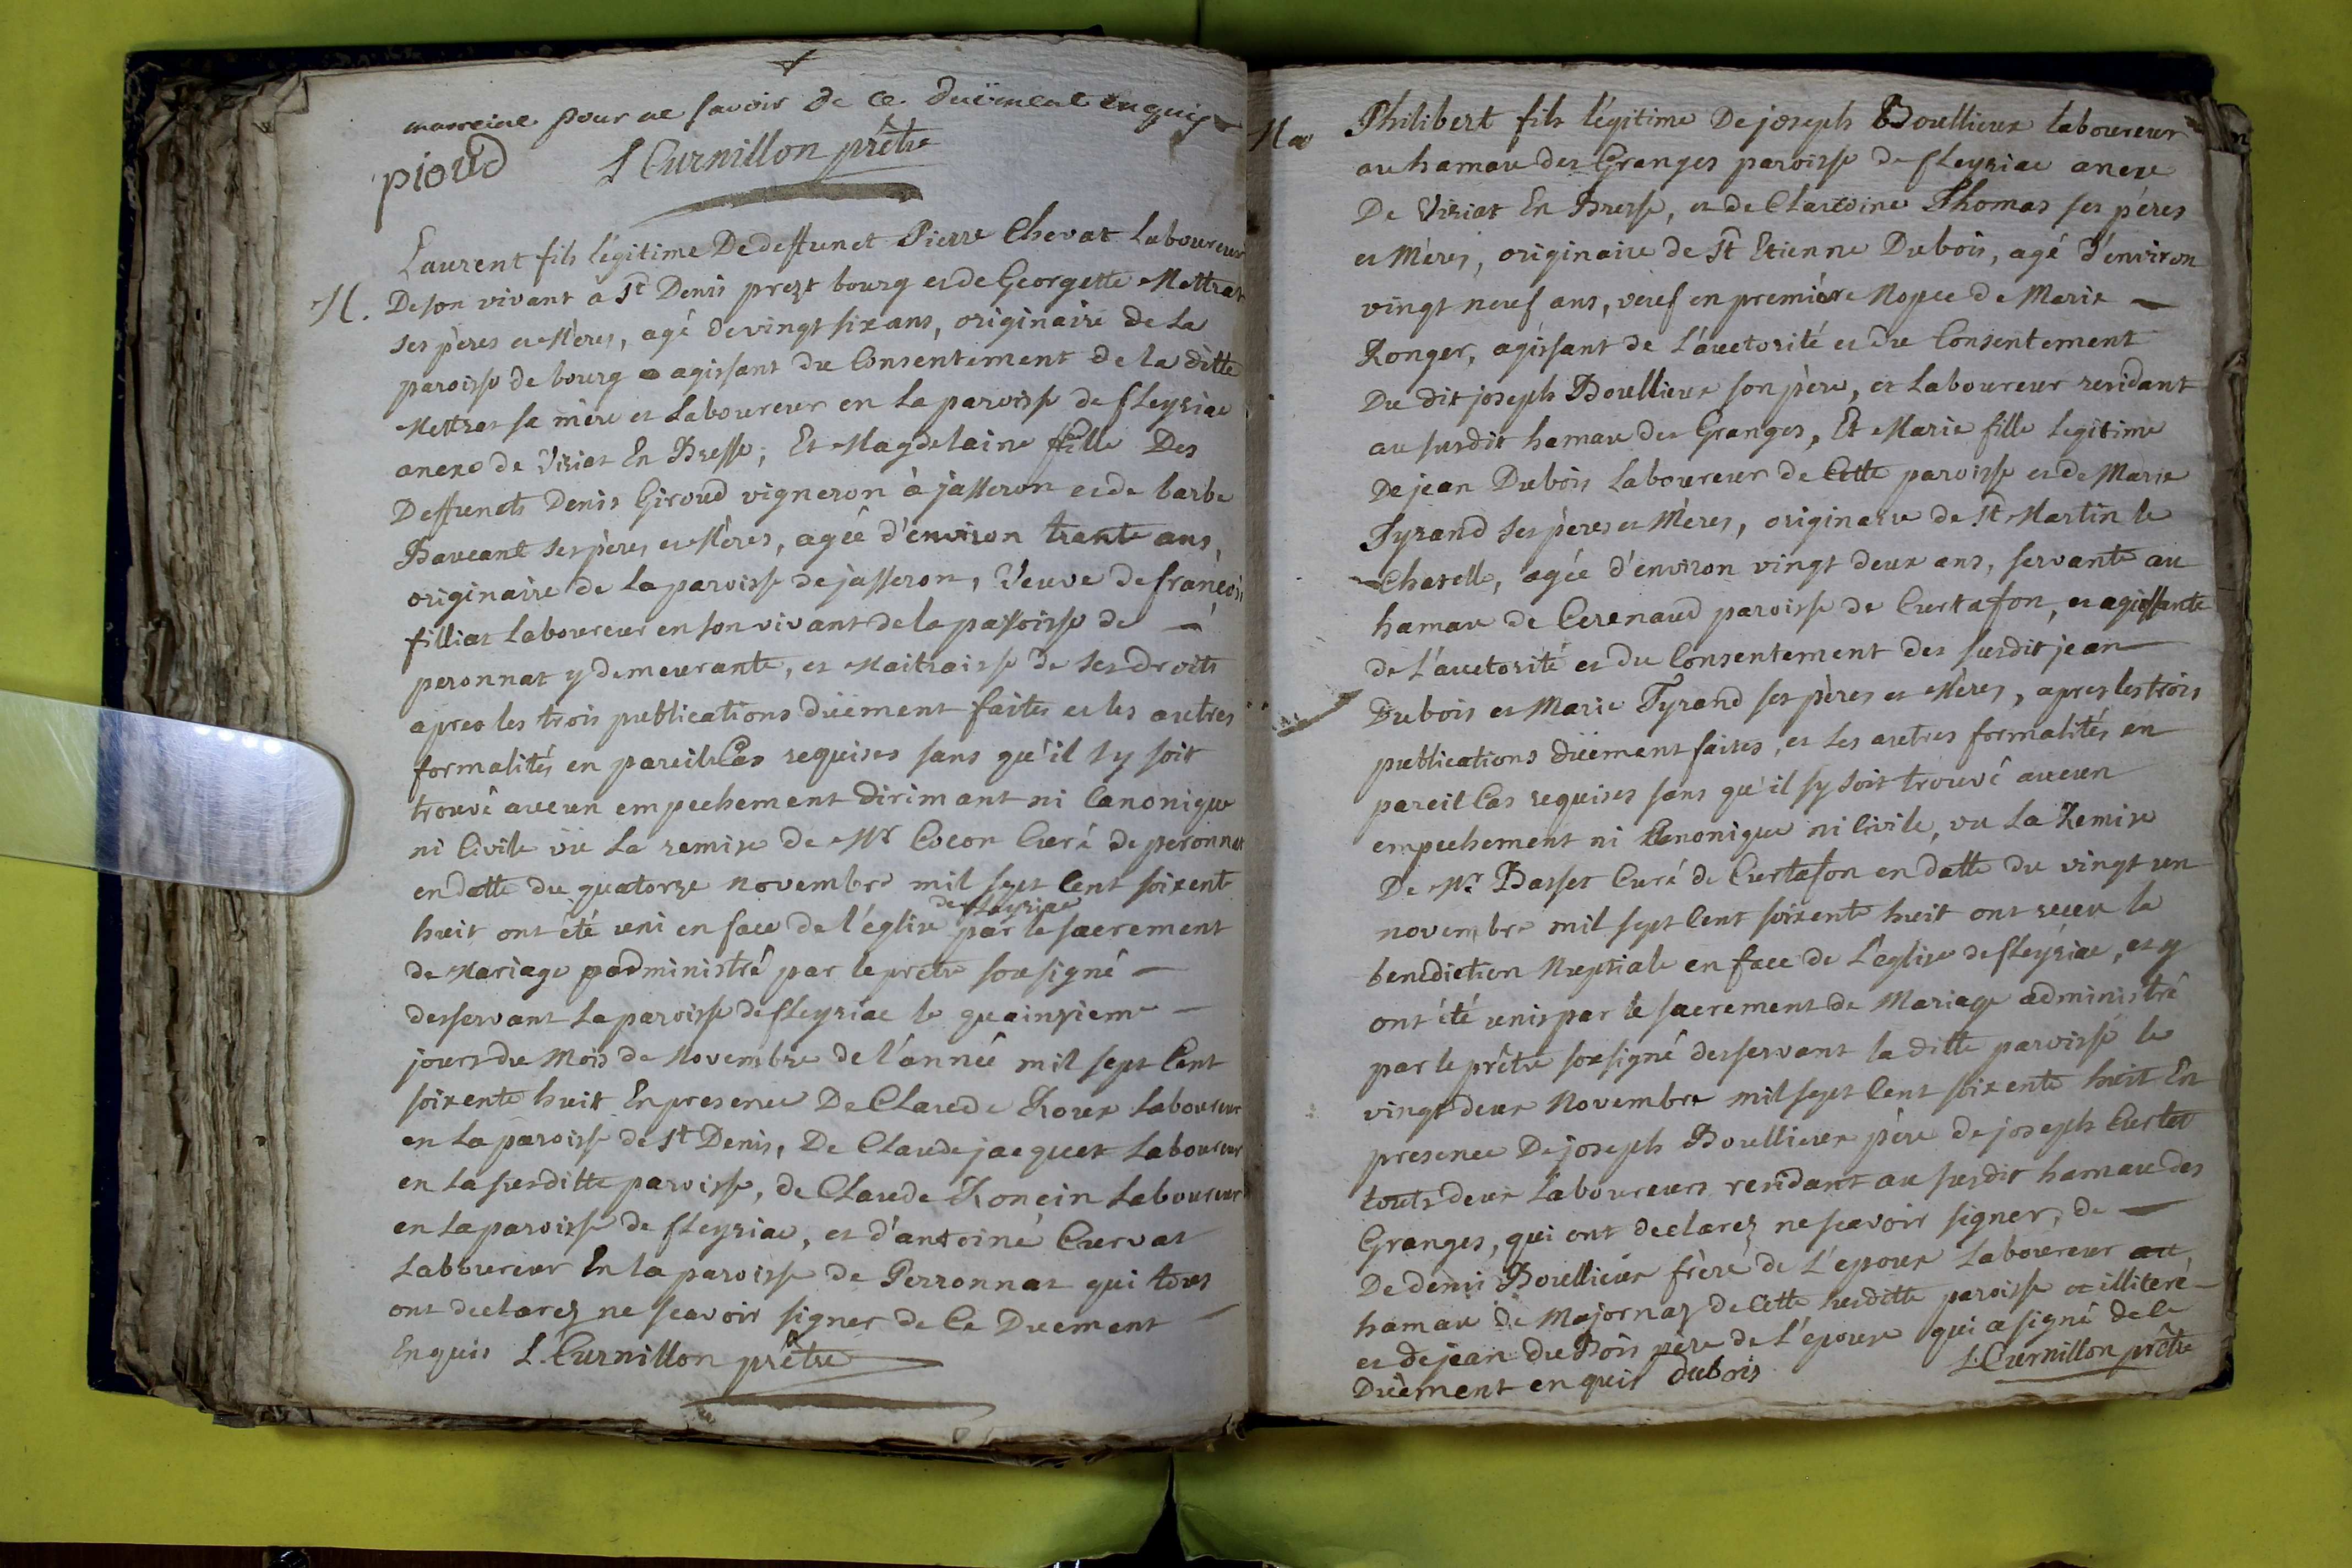 marreine pour ne savoir de ce duëment enquis
pioud L Curnillon prêtre
Laurent fils légitime De deffunct Pierre Chevat Laboureur
M. De son vivant à St Denis prezt bourg et de Georgette Mettrat
ses pères et Mères, agé de vingt six ans, originaire de La
paroisse de bourg agissant du Consentement de la ditte
Mettrat sa mère et Laboureur en La paroisse de fleyriac
anexe de Viriat En Bresse; Et Magdelaine fille Des
Deffuncts Denis Giroud vigneron à jasseron et de barbe
Baveant ses pères et Mères, agée d'environ trante ans,
originaire de La paroisse de jasseron, Veuve de françois
filliat Laboureur en son vivant de la paroisse de
peronnat y demeurante, et Maitraisse de ses droits
apres les trois publications düement faites et les autres
formalités en pareils Cas requises sans qu'il s'y soit
trouvé aucun empechement dirimant ni Canonique
ni Civile vü La remise de Mr Cocon Curé de peronnat
en datte du quatorze novembre mil sept Cent soixente
huit ont été uni en face de l'église de fleyriac par le sacrement
de Mariage administré par le prêtre sousigné
desservant La paroisse de fleyriac le quainzieme
jours du Mois de Novembre de l'année mil sept Cent
soixente huit En presence De Claude Roux Laboureur
en La paroisse de St Denis, De Claude jacquet Laboureur
en La susditte paroisse, de Claude Roncin Laboureur
en La paroisse de fleyriac, et d'antoine Curvat
Laboureur En la paroisse de Perronnat qui tous
ont declarez ne sçavoir signer de Ce Duement
Enquis L. Curnillon prêtre
Ma Philibert fils légitime De joseph Boullieux laboureur
au hamau des Granges paroisse de fleyriac anexe
De Viriat En Bresse, et de Claudine Thomas ses pères
et Mères, originaire de St Etienne Dubois, agé d'environ
vingt neuf ans, veuf en première Nopce de Marie
Ronger, agissant de L'auctorité et du Consentement
Du dit joseph Boullieux son père, et Laboureur residant
au susdit hamau des Granges, Et Marie fille legitime
De jean Dubois Laboureur de Cette paroisse et de Marie
Tyrand ses pères et Mères, originaire de St Martin le
Chatelle, agée d'environ vingt deux ans, servante au
hamau de Cerenaud paroisse de Curtafon, et agissante
de L'auctorité et du Consentement des susdit jean
Dubois et Marie Tyrand ses pères et Mères, apres les trois
publications düement faites, et les autres formalités en
pareil Cas requises sans qu'il sy soit trouvé aucun
empechement ni Canonique ni Civile, vu La Remise
De Mr Basset Curé de Curtafon en datte du vingt un
novembre mil sept Cent soixente huit ont receu la
benediction Nuptiale en face de L'église de fleyriac, et y
ont été unis par le sacrement de Mariage administré
par le prêtre sousigné desservant la ditte paroisse le
vingt deux Novembre mil sept Cent soixente huit En
presence De joseph Boullieux père de joseph Curtet
touts deux Laboureurs residant au susdit hamau des
Granges, qui ont declarez ne sçavoir signer, de
De denis Boullieux frère de L'époux Laboureur au
hamau de Majornaz de Cette susditte paroisse et illiteré
et de jean du Bois père de L'épouse qui a signé de Ce
Duëment enquis dubois L. Curnillon prêtre